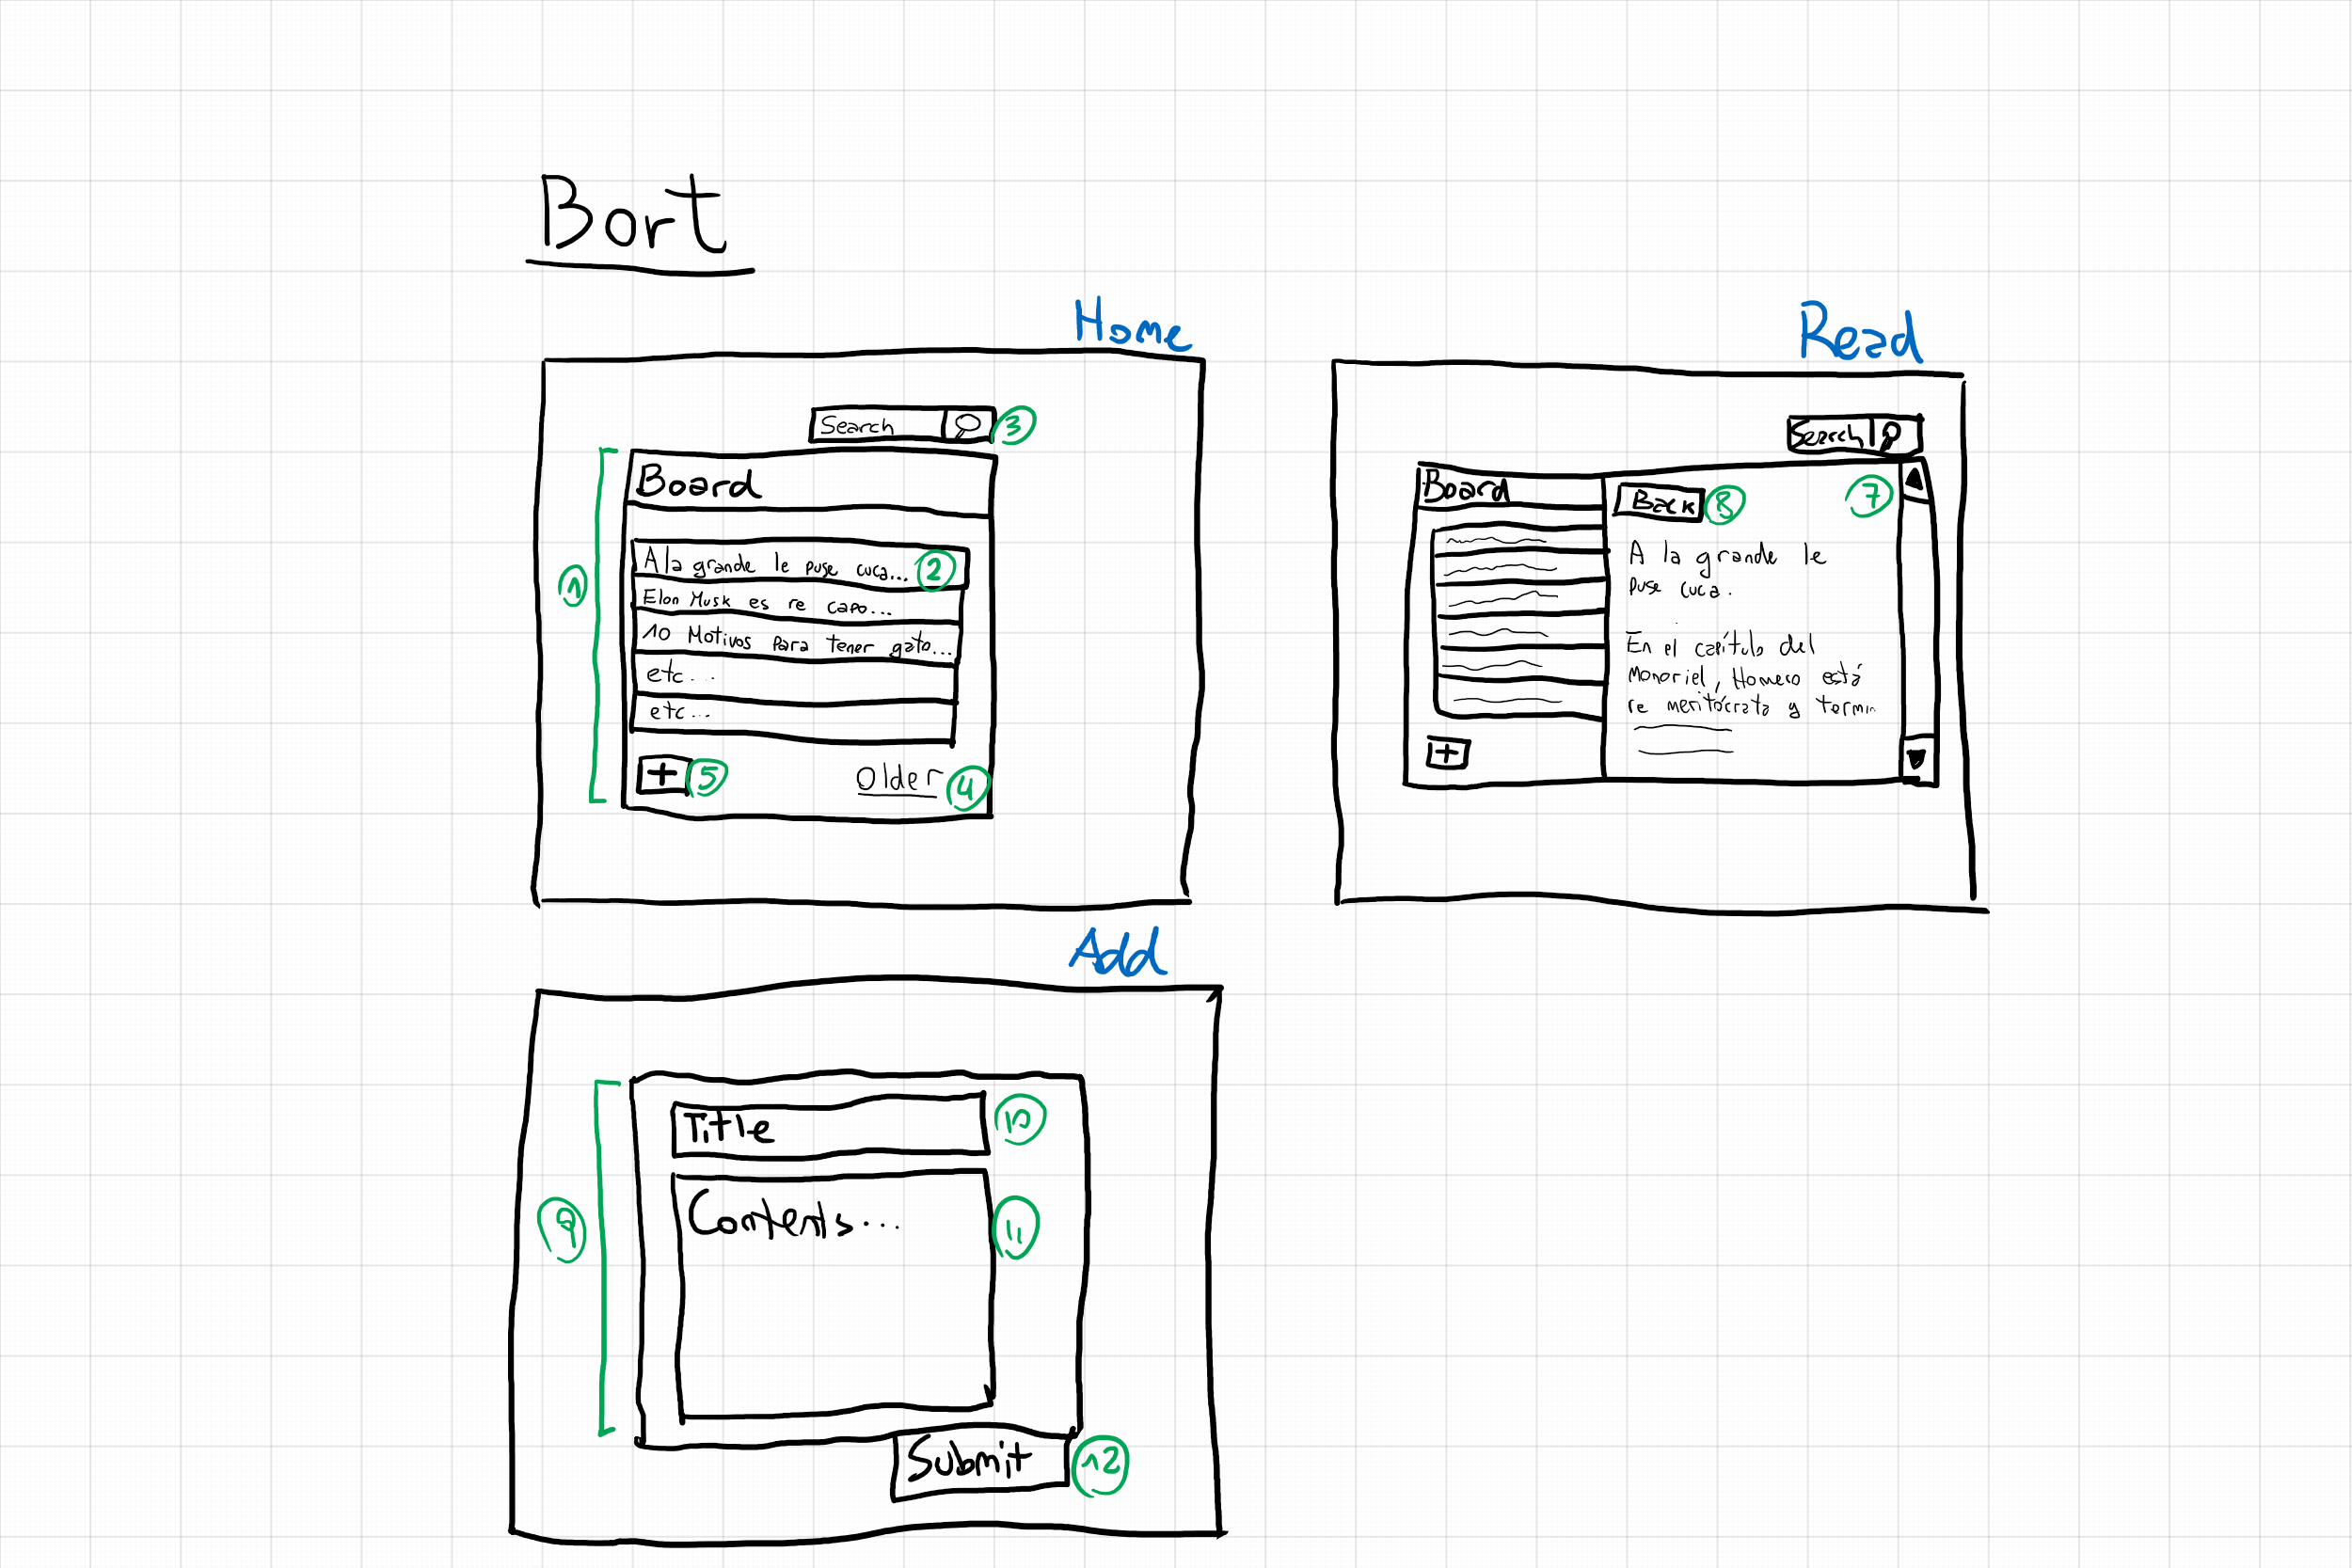 Bort
Home
Search
3
Board
1
A la grande le puse cuca... 2
Elon Musk es re capo...
10 Motivos para tener gato...
etc...
etc...
+ 5
Older 4
Read
Search
Board
Back 8
7
A la grande le
puse cuca.
En el capítulo del
Monoriel, Homero está
re meritócrata y termin
+
Add
9
Title 10
Contents... 11
Submit 12